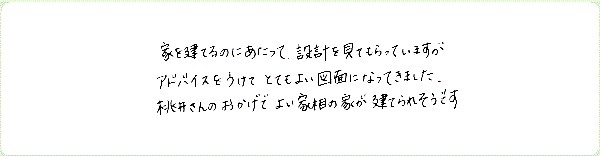 家を建てるのにあたって、設計を見てもらっていますが
アドバイスをうけて とてもよい図面になってきました。
桃井さんのおかげで よい家相の家が 建てられそうです